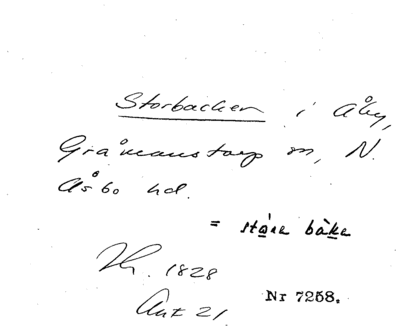 Storbacken i Åby,
Gråmanstorp sn, N.
Åsbo hd.
= stǻre bàke
1828
Ant 21
Nr 7258.